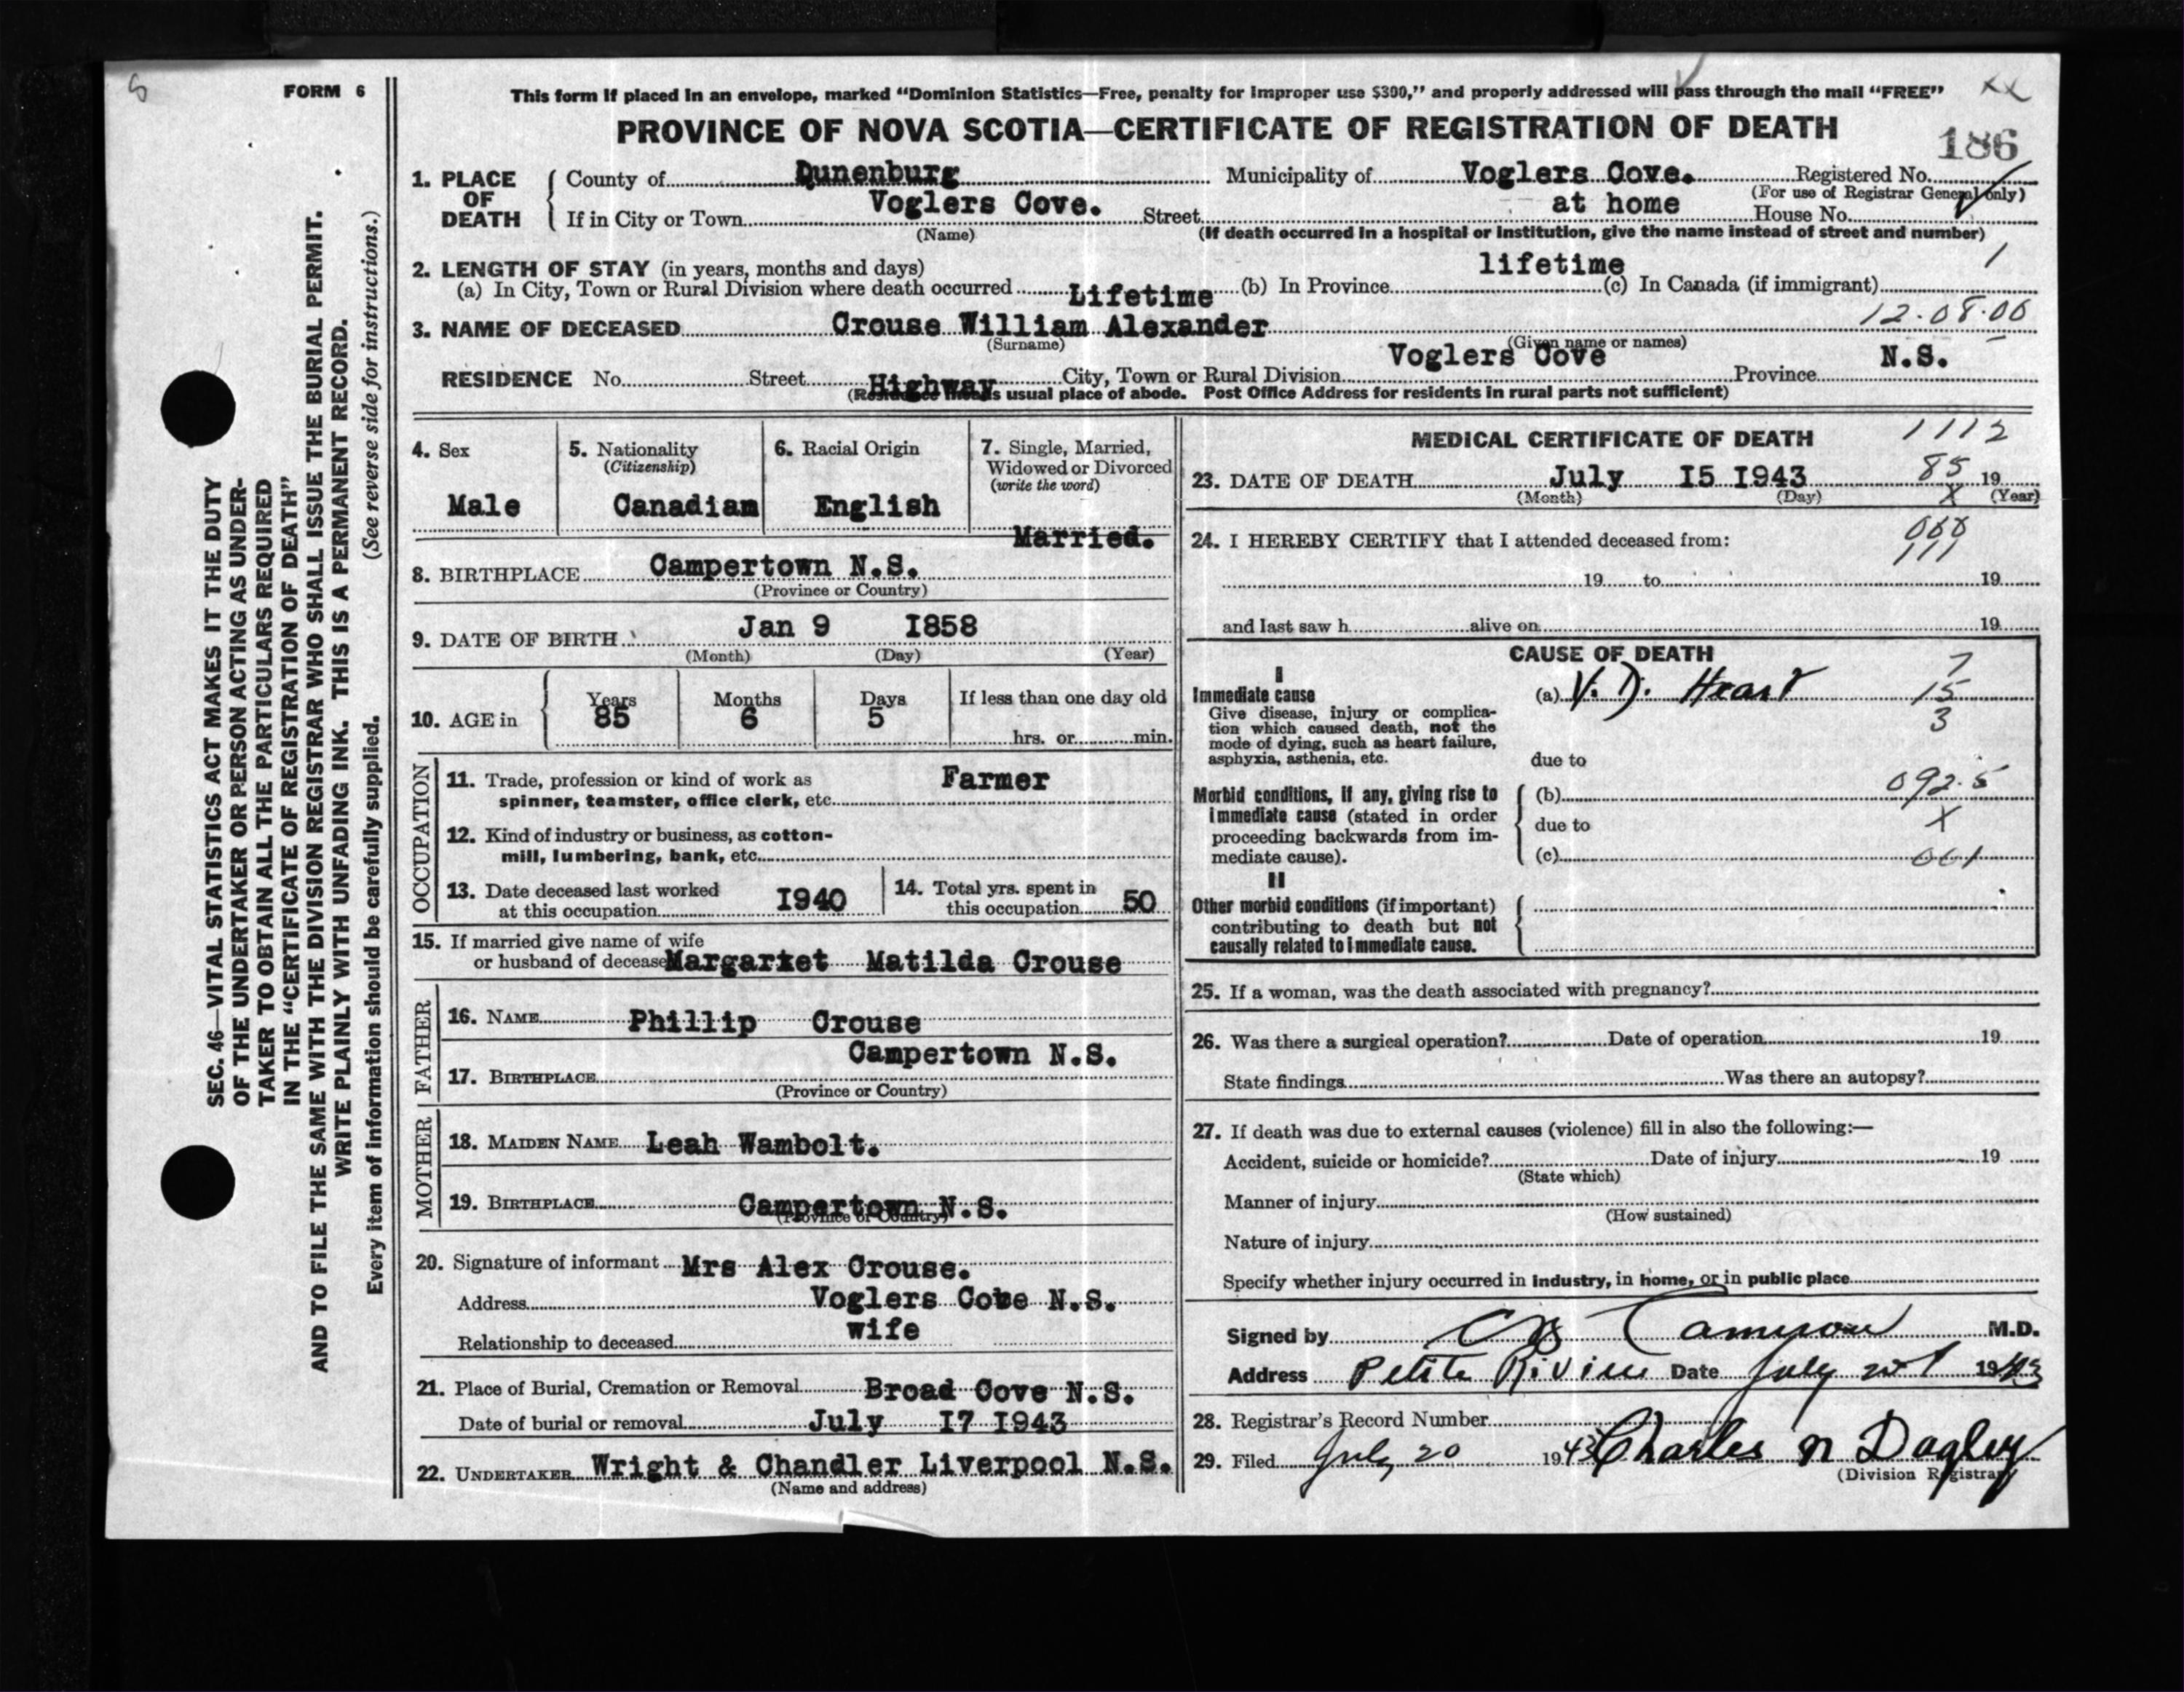 FORM 6
This form if placed in an envelope, marked "Dominion Statistics—Free, penalty for improper use $300," and properly addressed will pass through the mail "FREE"
PROVINCE OF NOVA SCOTIA—CERTIFICATE OF REGISTRATION OF DEATH
186
1. PLACE OF DEATH
County of Qunenburg Municipality of Voglers Cove. Registered No.
(For use of Registrar General only)
If in City or Town Voglers Cove. Street at home House No.
(Name) (If death occurred in a hospital or institution, give the name instead of street and number)
2. LENGTH OF STAY (in years, months and days)
(a) In City, Town or Rural Division where death occurred Lifetime (b) In Province lifetime (c) In Canada (if immigrant) 1
3. NAME OF DECEASED Crouse William Alexander 12.08.00
(Surname) (Given name or names)
RESIDENCE No. Street Highway City, Town or Rural Division Voglers Cove Province N.S.
(Residence means usual place of abode. Post Office Address for residents in rural parts not sufficient)
4. Sex
Male
5. Nationality
(Citizenship)
Canadian
6. Racial Origin
English
7. Single, Married,
Widowed or Divorced
(write the word)
Married.
8. BIRTHPLACE Campertown N.S.
(Province or Country)
9. DATE OF BIRTH Jan 9 I858
(Month) (Day) (Year)
10. AGE in
Years Months Days If less than one day old
85 6 5
hrs. or min.
OCCUPATION
11. Trade, profession or kind of work as Farmer
spinner, teamster, office clerk, etc.
12. Kind of industry or business, as cotton-
mill, lumbering, bank, etc.
13. Date deceased last worked
at this occupation I940
14. Total yrs. spent in
this occupation 50
15. If married give name of wife
or husband of deceased Margaret Matilda Crouse
FATHER
16. NAME Phillip Crouse
17. BIRTHPLACE Campertown N.S.
(Province or Country)
MOTHER
18. MAIDEN NAME Leah Wambolt.
19. BIRTHPLACE Campertown N.S.
(Province or Country)
20. Signature of informant Mrs Alex Crouse.
Address Voglers Cove N.S.
Relationship to deceased wife
21. Place of Burial, Cremation or Removal Broad Cove N.S.
Date of burial or removal July I7 I943
22. UNDERTAKER Wright & Chandler Liverpool N.S.
(Name and address)
MEDICAL CERTIFICATE OF DEATH 1112
23. DATE OF DEATH July I5 I943 85 19
(Month) (Day) X (Year)
24. I HEREBY CERTIFY that I attended deceased from:
111
19 to 19
and last saw h alive on 19
CAUSE OF DEATH
I
Immediate cause
Give disease, injury or complica-
tion which caused death, not the
mode of dying, such as heart failure,
asphyxia, asthenia, etc.
(a) V. D. Heart
7
15
3
due to
Morbid conditions, if any, giving rise to
immediate cause (stated in order
proceeding backwards from im-
mediate cause).
(b) 092.5
due to X
(c) 001
II
Other morbid conditions (if important)
contributing to death but not
causally related to immediate cause.
25. If a woman, was the death associated with pregnancy?
26. Was there a surgical operation? Date of operation 19
State findings Was there an autopsy?
27. If death was due to external causes (violence) fill in also the following:—
Accident, suicide or homicide? Date of injury 19
(State which)
Manner of injury
(How sustained)
Nature of injury
Specify whether injury occurred in industry, in home, or in public place
Signed by Cameron M.D.
Address Petite Riviere Date July 1943
28. Registrar's Record Number
29. Filed July 20 1943 Charles N Dagley
(Division Registrar)
SEC. 46—VITAL STATISTICS ACT MAKES IT THE DUTY
OF THE UNDERTAKER OR PERSON ACTING AS UNDER-
TAKER TO OBTAIN ALL THE PARTICULARS REQUIRED
IN THE "CERTIFICATE OF REGISTRATION OF DEATH"
AND TO FILE THE SAME WITH THE DIVISION REGISTRAR WHO SHALL ISSUE THE BURIAL PERMIT.
WRITE PLAINLY WITH UNFADING INK. THIS IS A PERMANENT RECORD.
Every item of information should be carefully supplied. (See reverse side for instructions.)